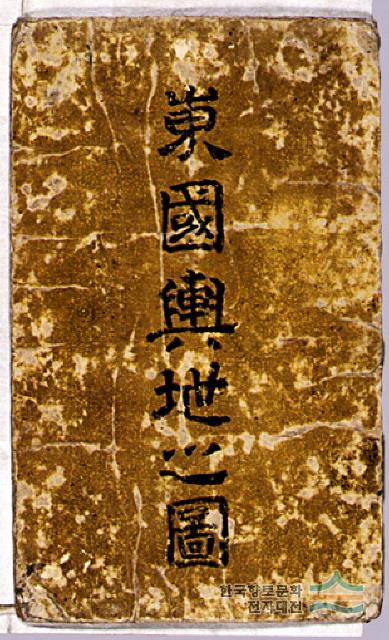 東國輿地之圖
한국향토문화
전자대전